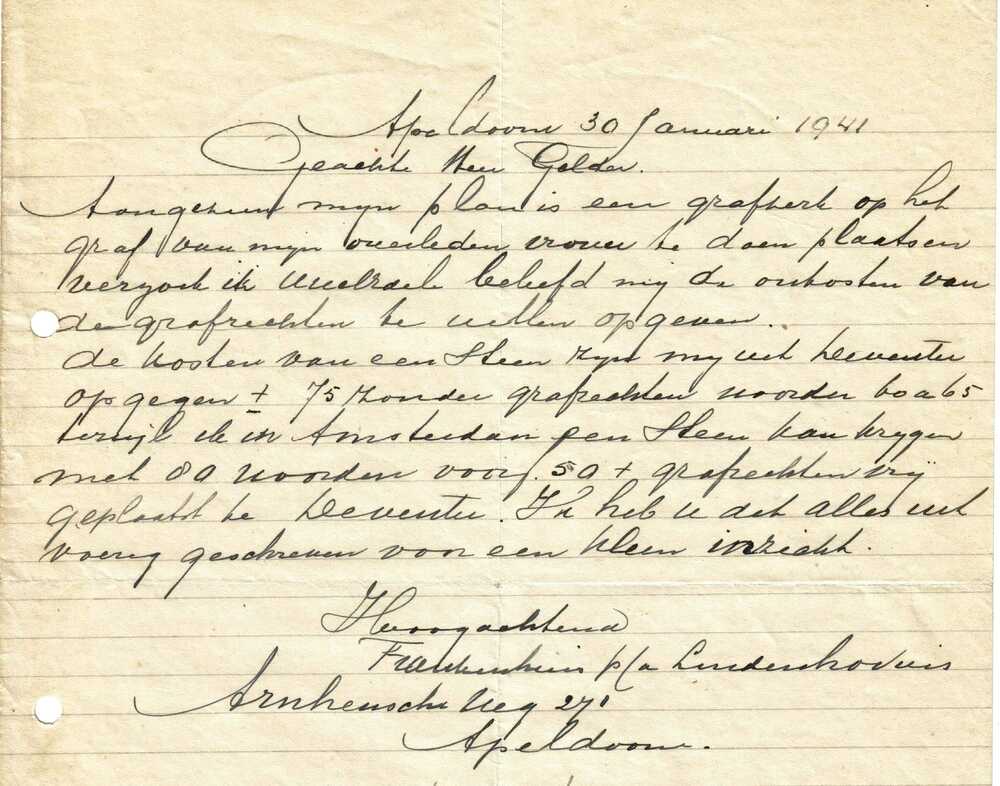 Apeldoorn 30 Januari 1941
Geachte Heer Gelder.
Aangezien mijn plan is een grafzerk op het
graf van mijn overleden vrouw te doen plaatsen
verzoek ik UwEdele beleefd mij de onkosten van
de grafrechten te willen opgeven.
de kosten van een Steen zijn mij uit Deventer
opgegen ± 75 zonder grafrechten woorden 60 a 65
terwijl ik in Amsterdam een Steen kan krygen
met 80 woorden voor f. 50 + grafrechten vrij
geplaatst te Deventer. Ik heb u dit alles uit
voerig geschreven voor een klein inzicht.
Hoogachtend
p/a Lindenhovius
Arnhensche Weg 271
Apeldoorn.